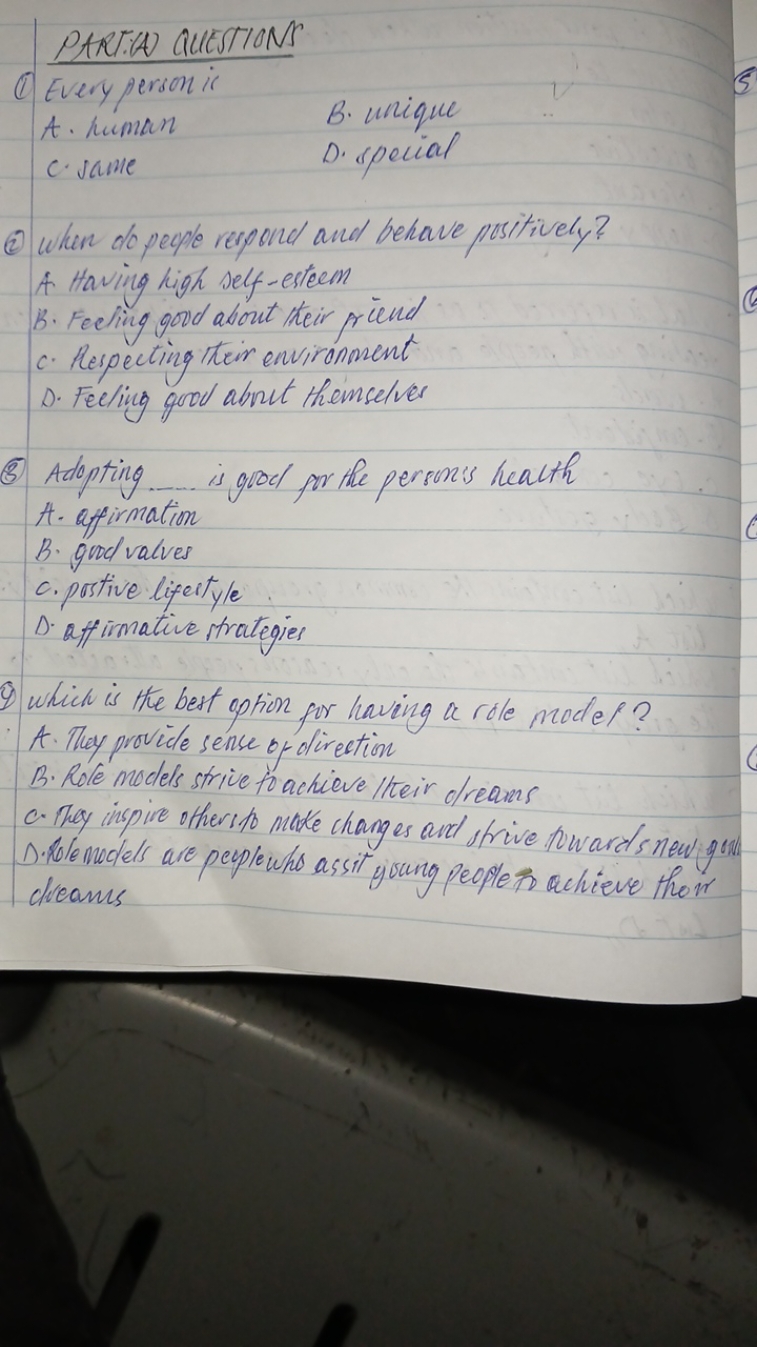 PART:(A) QUESTIONS
① Every person is
A. human B. unique
C. same D. special
② when do people respond and behave positively?
A. Having high self-esteem
B. Feeling good about their friend
C. Respecting their environment
D. Feeling good about themselves
③ Adopting ____ is good for the person's health
A. affirmation
B. good valves
C. postive lifestyle
D. affirmative strategies
which is the best option for having a role model?
A. They provide sense of direction
B. Role models strive to achieve their dreams
C. They inspire others to make changes and strive towards new
D. Role models are people who assit young people to achieve their
dreams